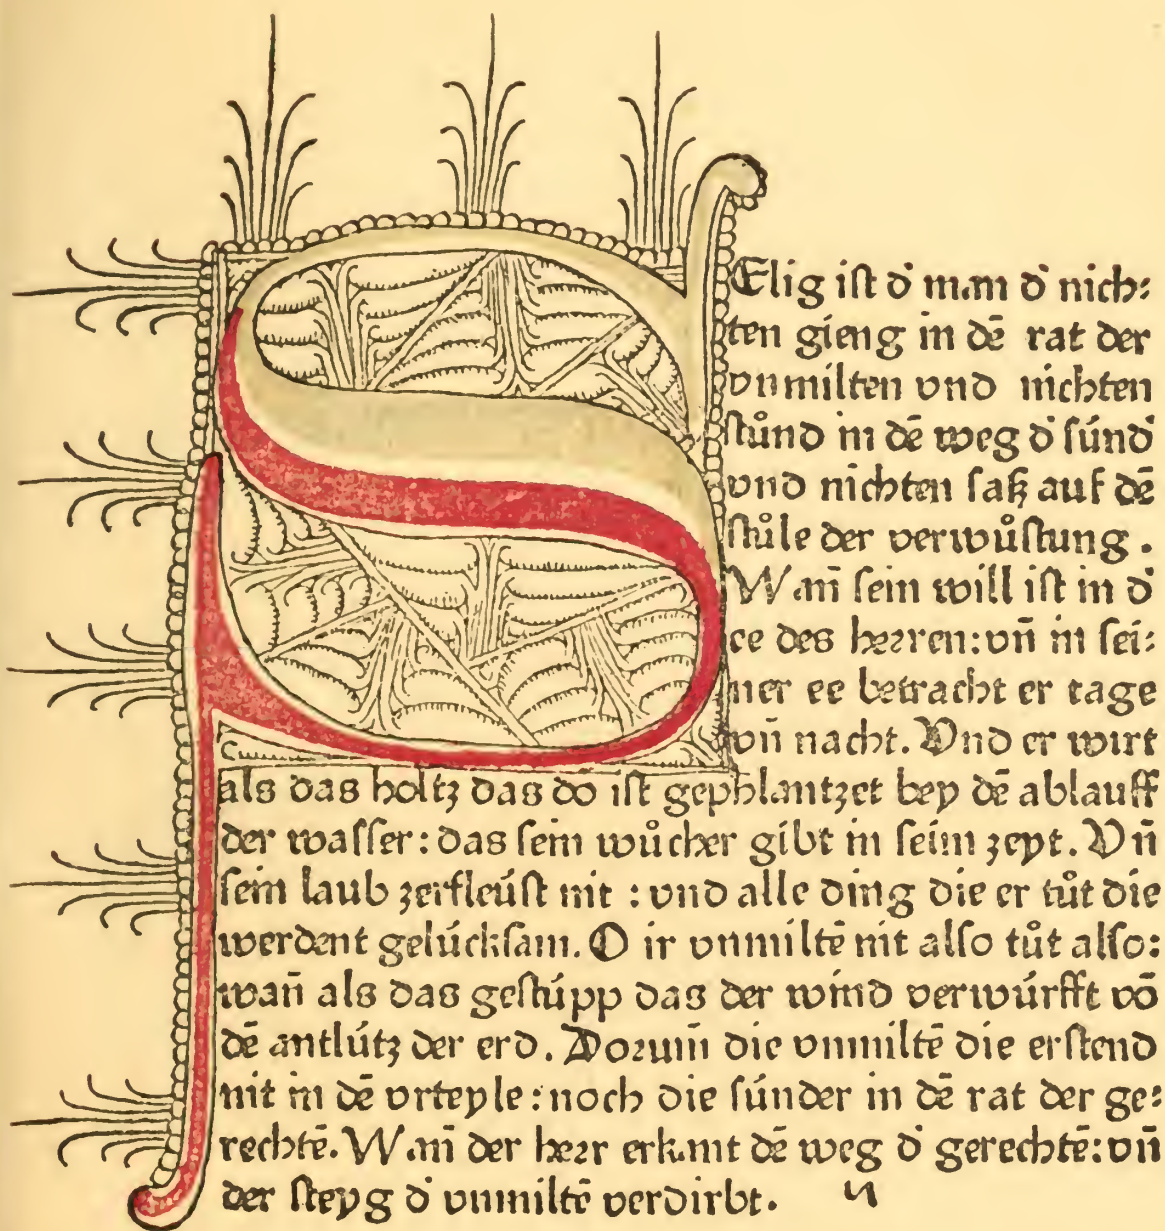 SElig iſt d̕ man d̕ nich⸗
ten gieng in dē rat der
vnmilten vnd nichten
ſtůnd in dē weg d̕ ſúnd̕
vnd nichten ſaß auf dē
ſtůle der verwůſtung.
Wañ ſein will iſt in d̕
ee des herren: vñ in ſei⸗
ner ee betracht er tage
vñ nacht. Vnd er wirt
als das holtz das do iſt gephlantzet bey dē ablauff
der waſſer: das ſein wůcher gibt in ſeim zeyt. Vñ
ſein laub zerfleúſt nit: vnd alle ding die er tůt die
werdent gelúckſam. O ir vnmiltē nit alſo tůt alſo:
wañ als das geſtúpp das der wind verwúrfft vō
dē antlútz der erd. Dorum̄ die vnmiltē die erſtend
nit in dē vrteyle: noch die ſúnder in dē rat der ge⸗
rechtē. Wañ der herr erkant dē weg d̕ gerechtē: vñ
der ſteyg d̕ vnmiltē verdirbt.